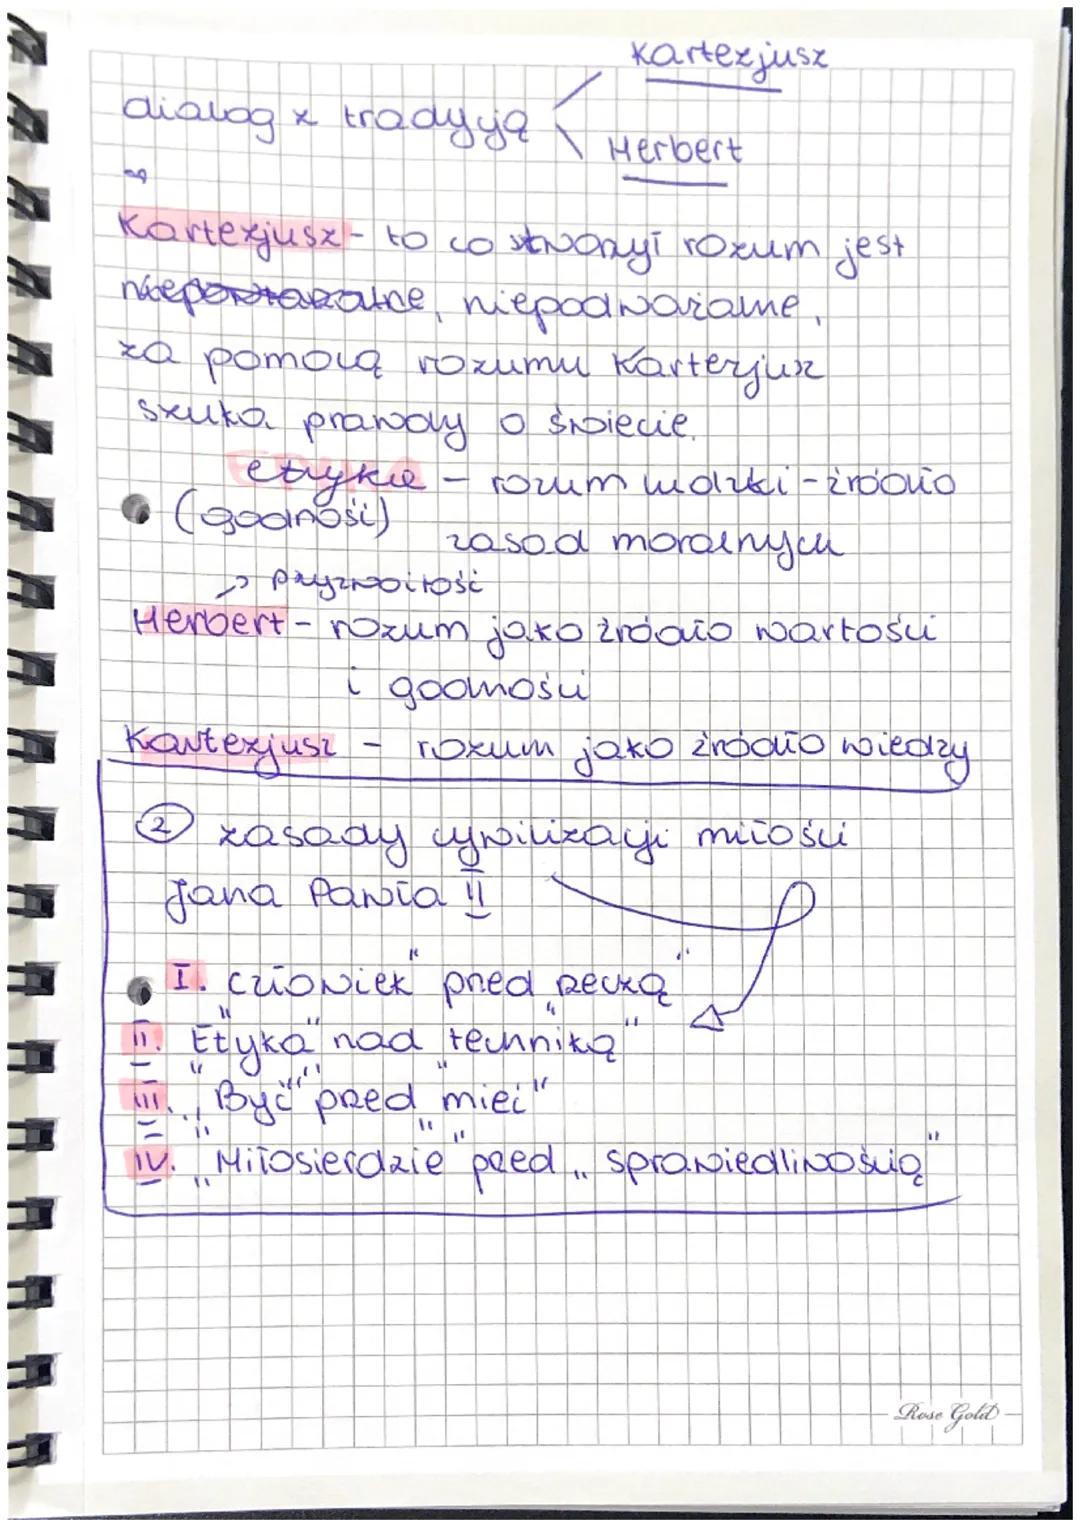 Kartezjusz
dialog z tradycją
Herbert
Kartezjusz - to co stworzył rozum jest
niepodważalne,
za pomocą rozumu Kartezjusz
szuka prawdy o świecie.
etykie - rozum ludzki - źródło
(godności) zasad moralnych
→ przyzwoitość
Herbert - rozum jako źródło wartości
i godności
Kartezjusz - rozum jako źródło wiedzy
② zasady cywilizacji miłości
Jana Pawła II
I. człowiek" przed rzeczą"
II. "Etyka" nad "techniką"
III. „Być" przed "mieć"
IV. "Miłosierdzie" przed „sprawiedliwością"
Rose Gold